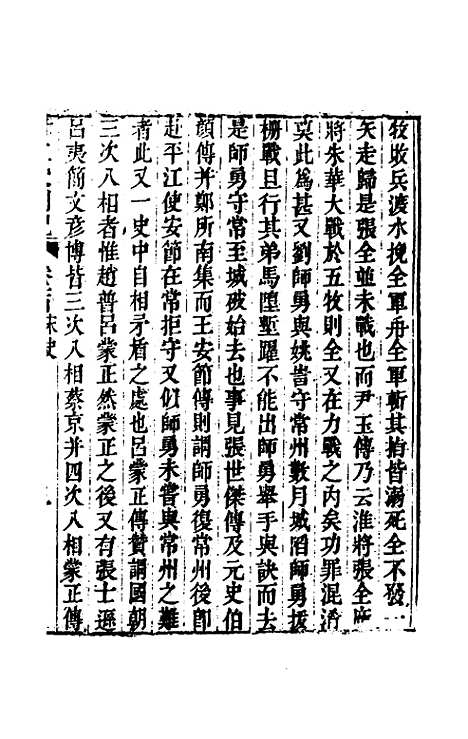 牧敗兵渡水挽全軍舟全軍斬其指皆溺死全不發一
矢走歸是張全並未戰也而尹玉傳乃云淮將張全廣
將朱華大戰於五牧則全又在力戰之內矣功罪混淆
莫此爲甚又劉師勇與姚訔守常州數月城陷師勇拔
柵戰且行其弟馬墮塹躍不能出師勇舉手與訣而去
是師勇守常至城破始去也事見張世傑傳及元史伯
顏傳并鄭所南集而王安節傳則謂師勇復常州後卽
赴平江使安節在常拒守又似師勇未嘗與常州之難
者此又一史中自相矛盾之處也呂蒙正傳贊謂國朝
三次入相者惟趙普呂蒙正然蒙正之後又有張士遜
呂夷簡文彥博皆三次入相蔡京并四次入相蒙正傳
宋史